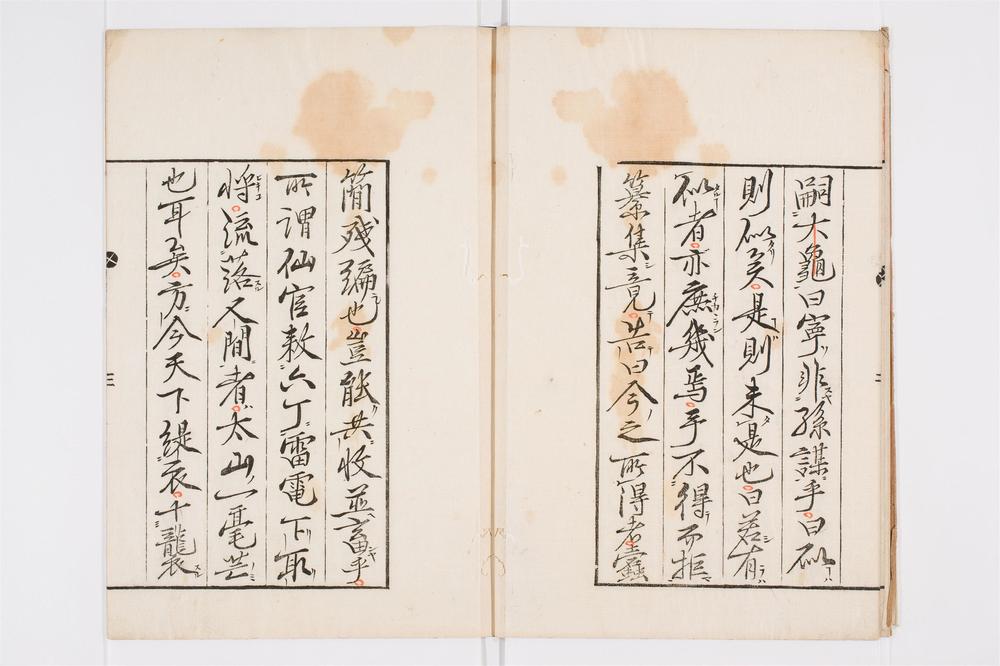 嗣大龜曰寧非孫謀乎曰似
則似矣是則未是也曰若有
似者亦庶幾焉乎不得而拒
纂集竟告曰今之所得者蠹
簡殘編也豈能共收並畜乎
所謂仙官敕六丁雷電下取
將流落人間者太山一毫芒
也耳矣方今天下緹衣十襲
三